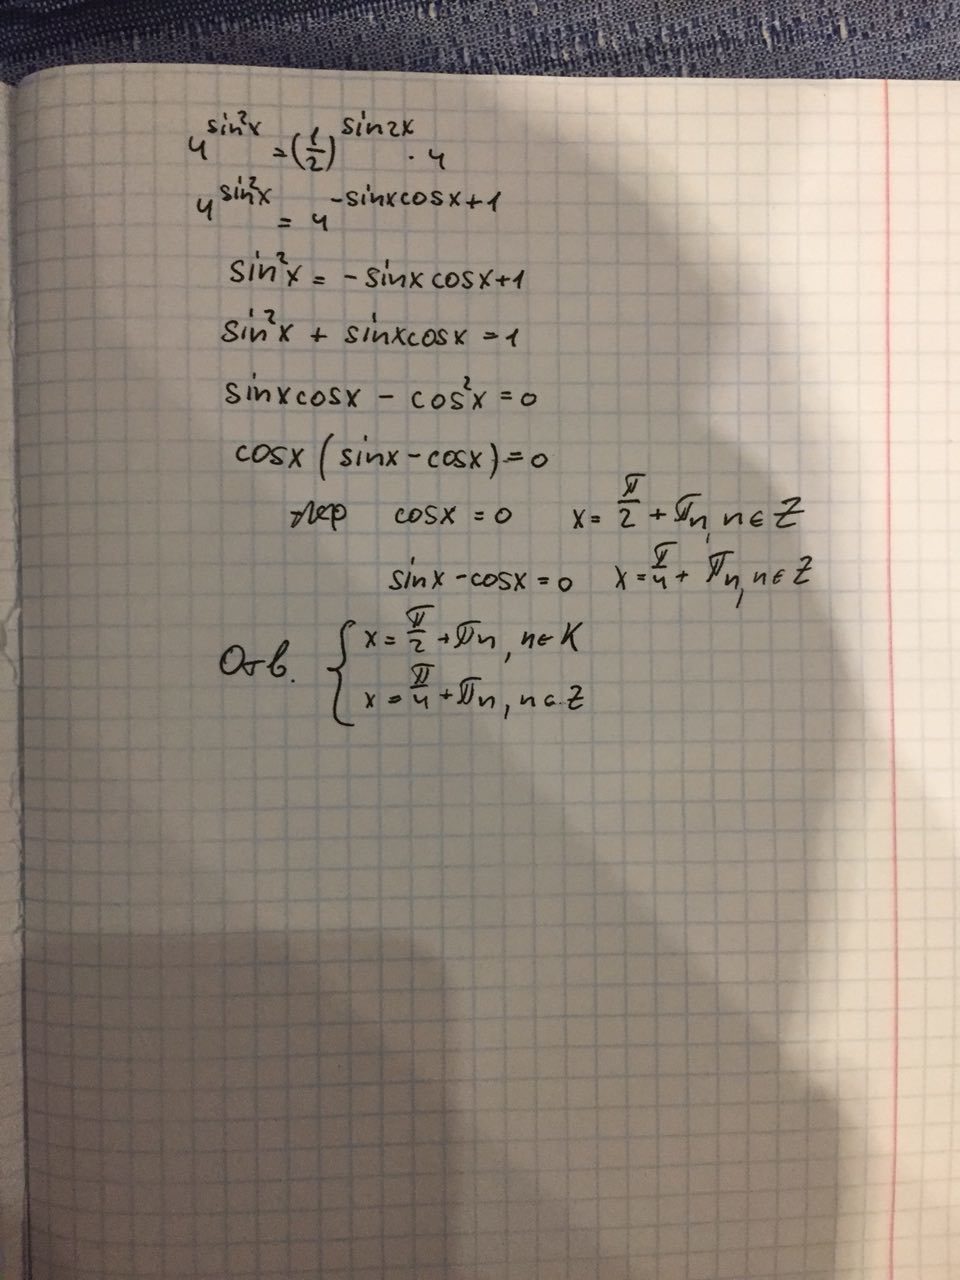 4^{sin²x} = (1/2)^{sin2x} · 4
4^{sin²x} = 4^{-sinxcosx+1}
sin²x = - sinx cosx+1
sin²x + sinxcosx = 1
sinxcosx - cos²x = 0
cosx (sinx - cosx) = 0
cosx = 0 x = π/2 + πn, n ∈ Z
sinx - cosx = 0 x = π/4 + πn, n ∈ Z
Отв. { x = π/2 + πn, n ∈ K
x = π/4 + πn, n ∈ Z